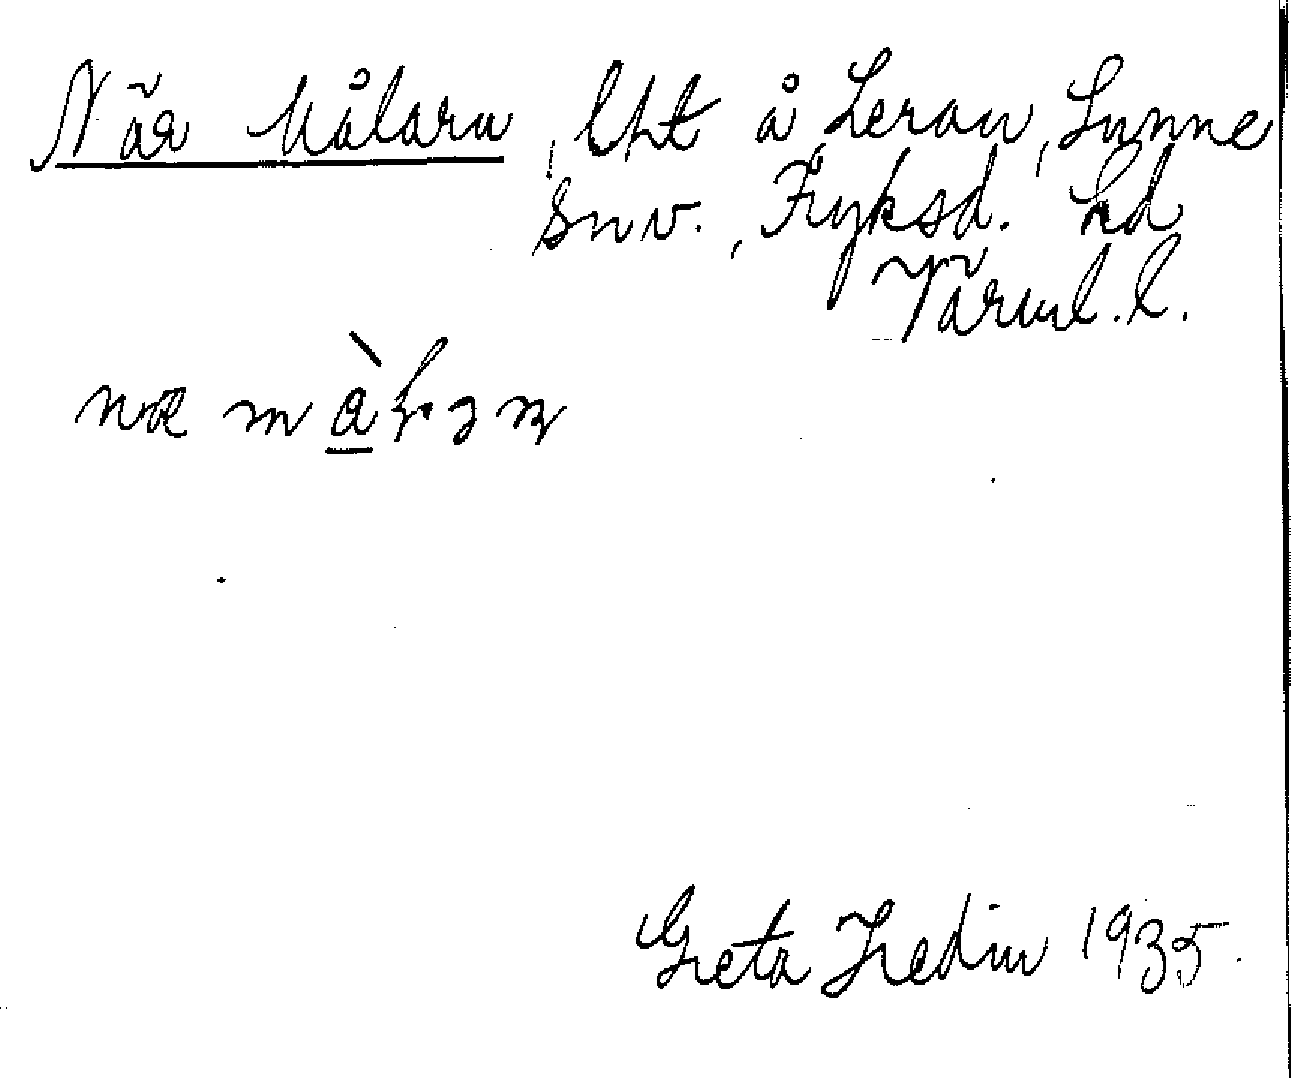 När Målarn, lht å Leran, Sunne
snv., Fryksd. hd
Värml. l.
Greta Hedin 1935.